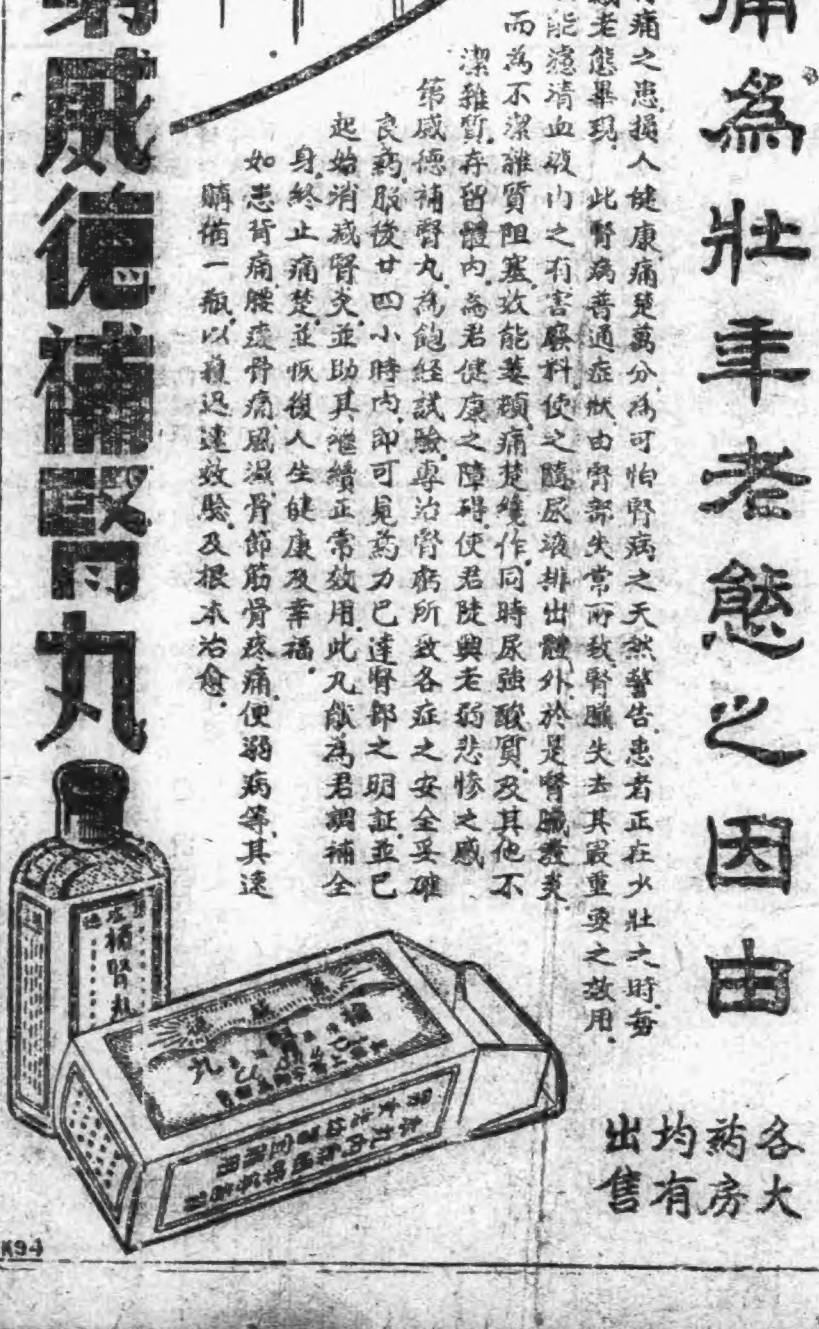 痛為壯年老態之因由
背痛之患損人健康痛楚萬分為可怕腎病之天然警告患者正在少壯之時每
老態畢現此腎病普通症狀由腎部失常所致腎臟失去其最重要之效用
能濾清血液內之有害廢料使之隨尿液排出體外於是腎臟發炎
而為不潔雜質阻塞效能萎頓痛楚纔作同時尿強酸質及其他不
潔雜質存留體內為君健康之障碍使君陡興老弱悲慘之感
第威德補腎丸為飽經試驗專治腎虧所致各症之安全妥確
良药服後廿四小時內即可見药力已達腎部之明証並已
起始消减腎炎並助其继續正常效用此丸能為君調補全
身終止痛楚並恢復人生健康及幸福
如患背痛腰痠骨痛風濕骨節筋骨疼痛便弱病等其速
購備一瓶以獲迅速效驗及根本治愈
第威德補腎丸
補腎丸
各大药房均有出售
K94